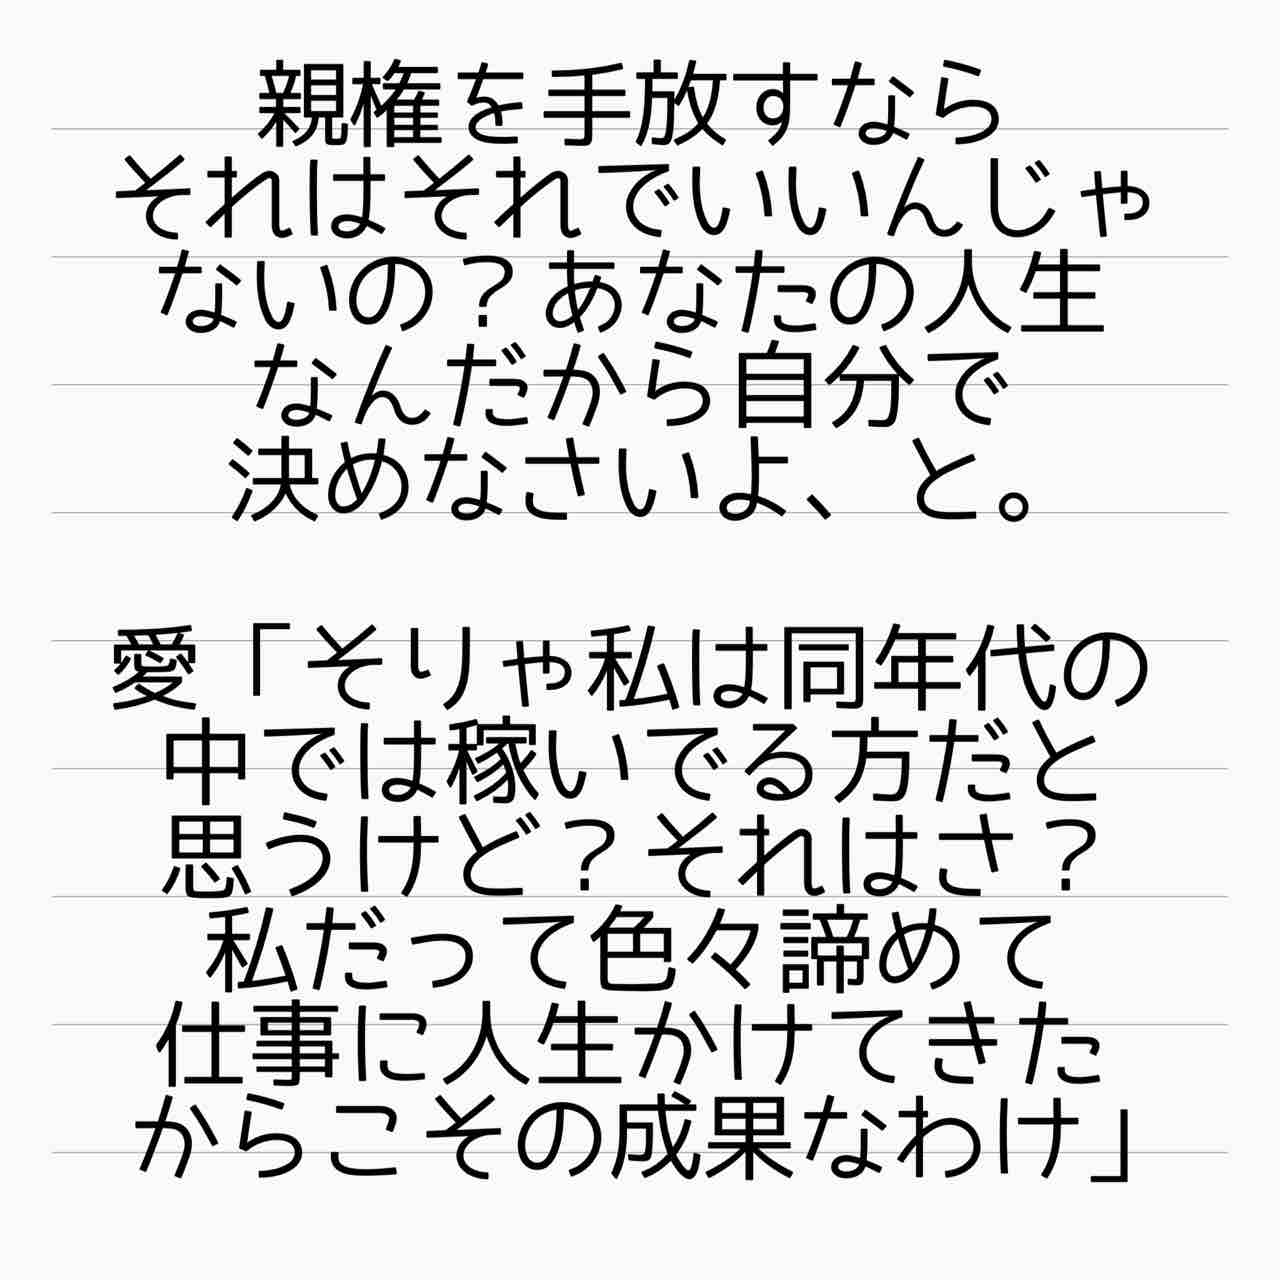 親権を手放すなら
それはそれでいいんじゃ
ないの？あなたの人生
なんだから自分で
決めなさいよ、と。
愛「そりゃ私は同年代の
中では稼いでる方だと
思うけど？それはさ？
私だって色々諦めて
仕事に人生かけてきた
からこその成果なわけ」